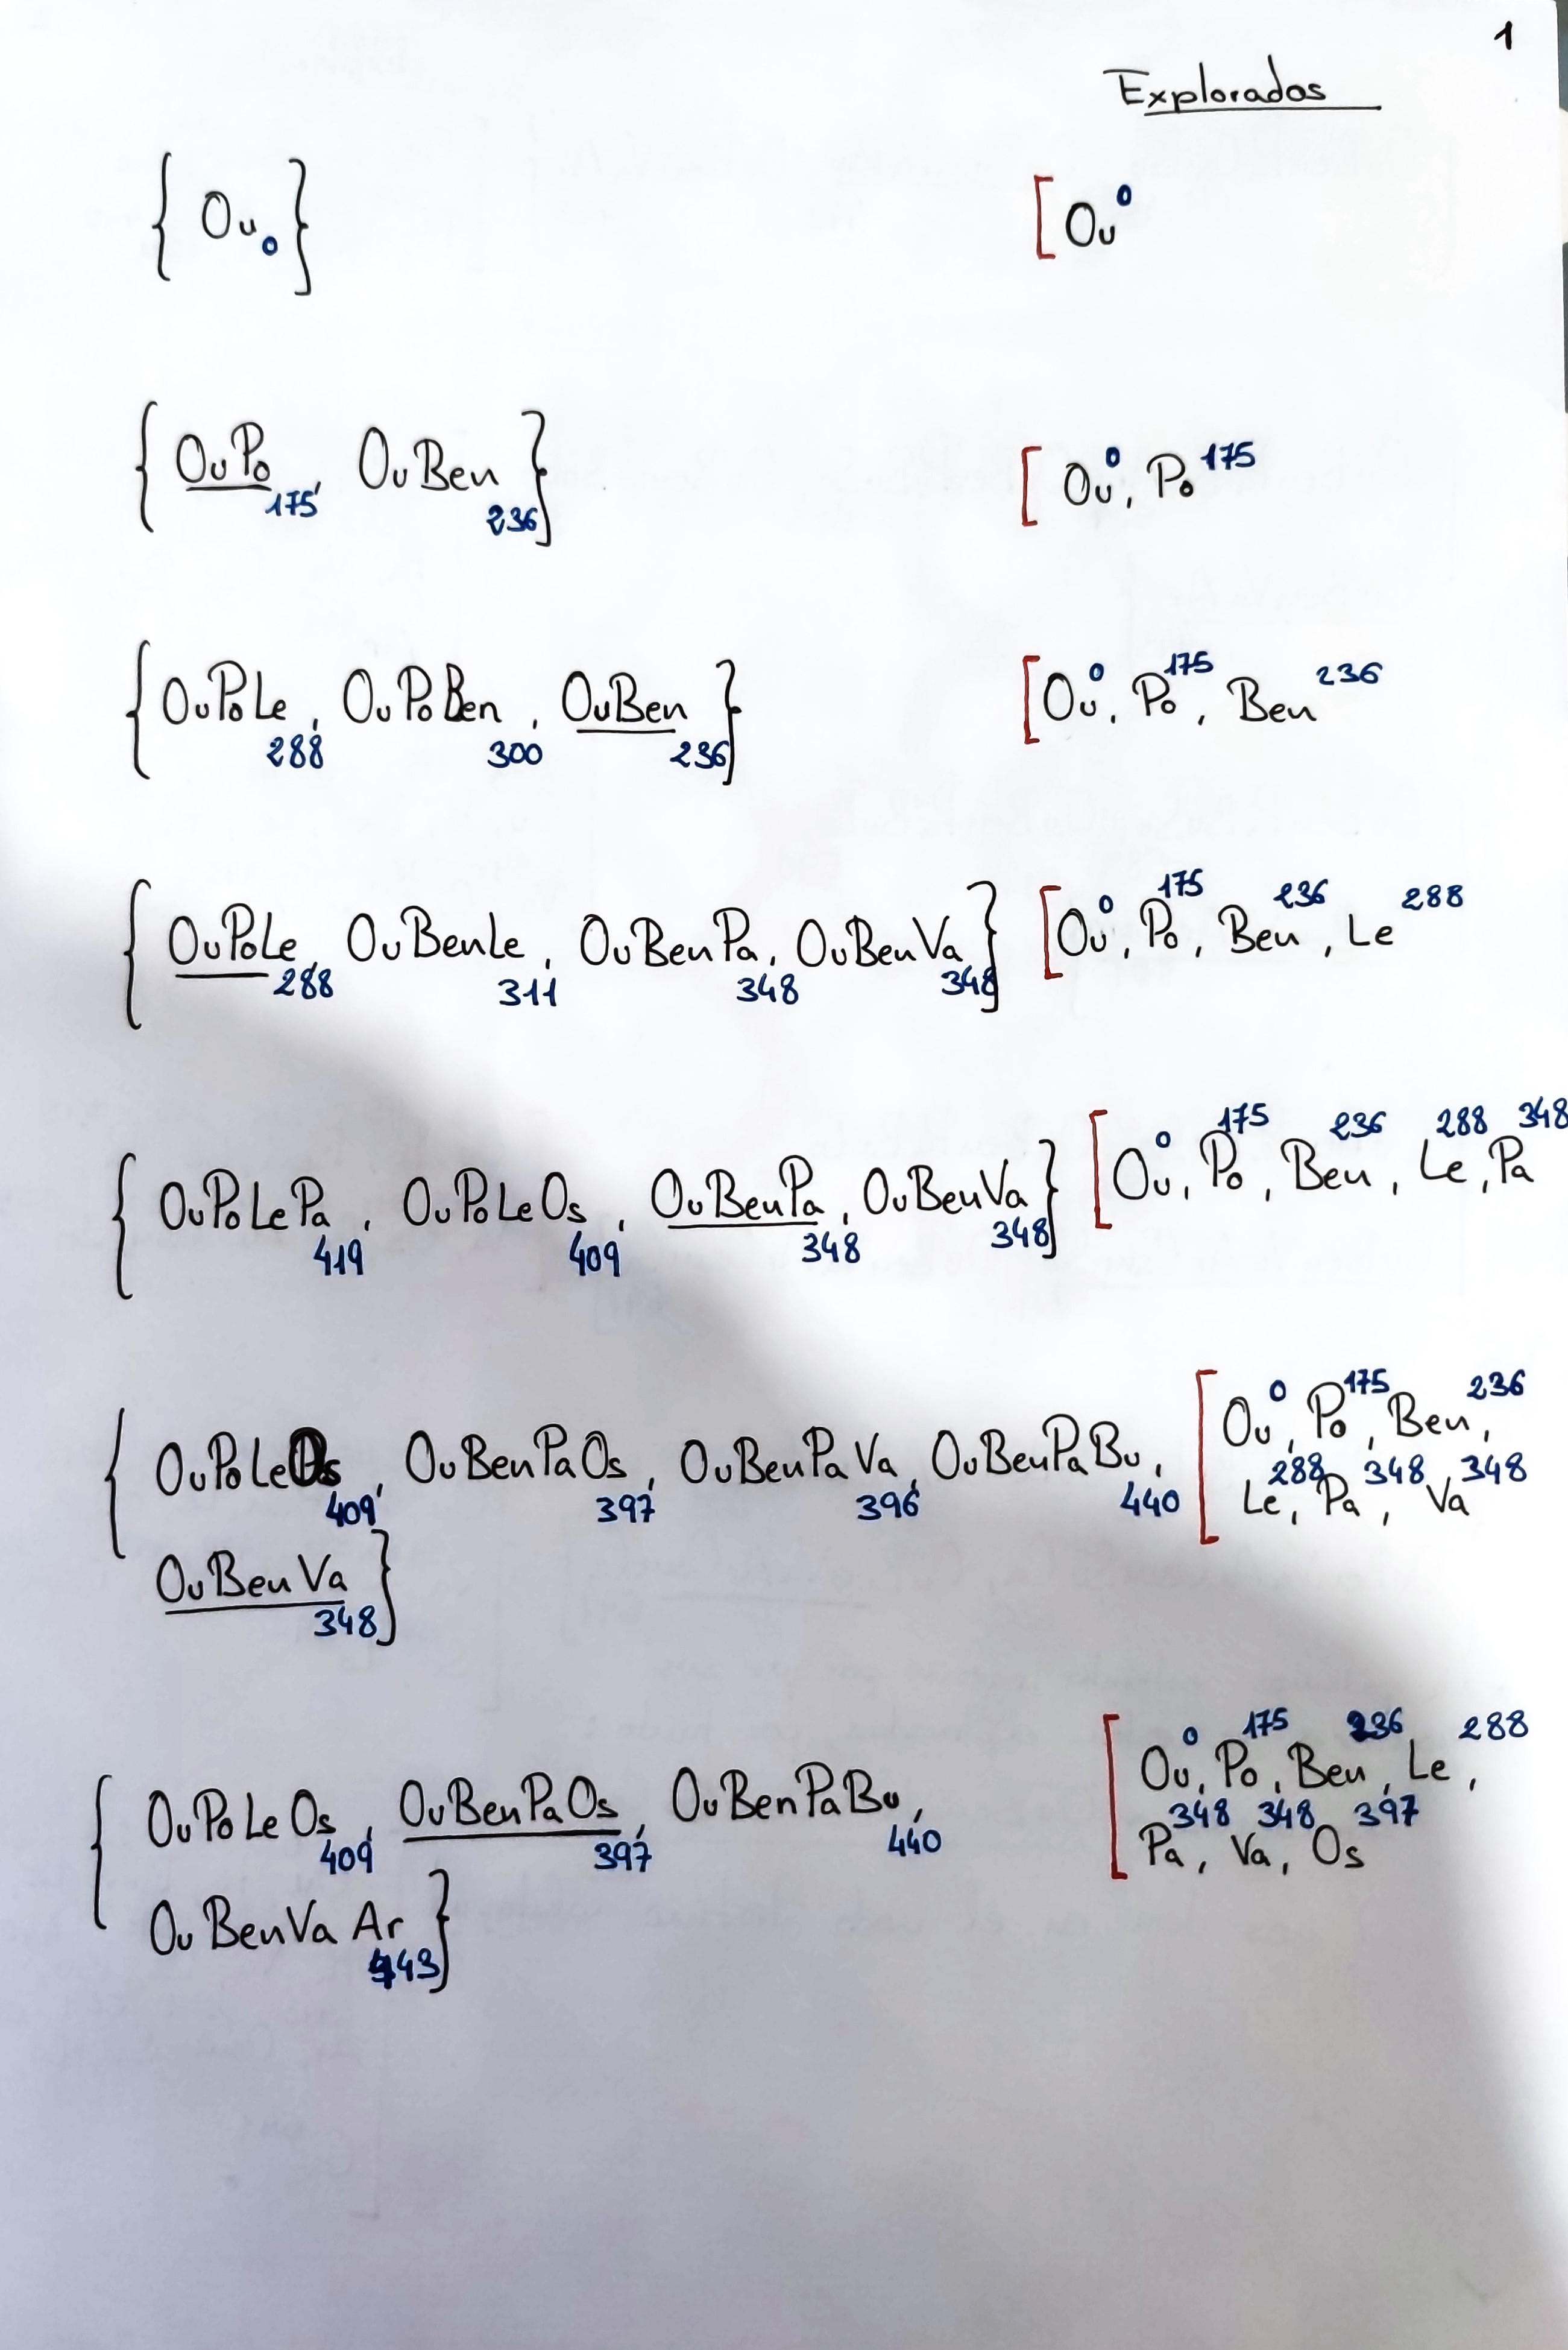 1
Explorados
{ Ou 0 } [ Ou 0
{ OuPo 175, OuBen 236 } [ Ou 0, Po 175
{ OuPoLe 288, OuPoBen 300, OuBen 236 } [ Ou 0, Po 175, Ben 236
{ OuPoLe 288, OuBenLe 311, OuBenPa 348, OuBenVa 348 } [ Ou 0, Po 175, Ben 236, Le 288
{ OuPoLePa 419, OuPoLeOs 409, OuBenPa 348, OuBenVa 348 } [ Ou 0, Po 175, Ben 236, Le 288, Pa 348
{ OuPoLeOs 409, OuBenPaOs 397, OuBenPaVa 396, OuBenPaBu 440, [ Ou 0, Po 175, Ben 236,
Le 288, Pa 348, Va 348
OuBenVa 348 }
{ OuPoLeOs 409, OuBenPaOs 397, OuBenPaBu 440, [ Ou 0, Po 175, Ben 236, Le 288,
Pa 348, Va 348, Os 397
OuBenVaAr 443 }